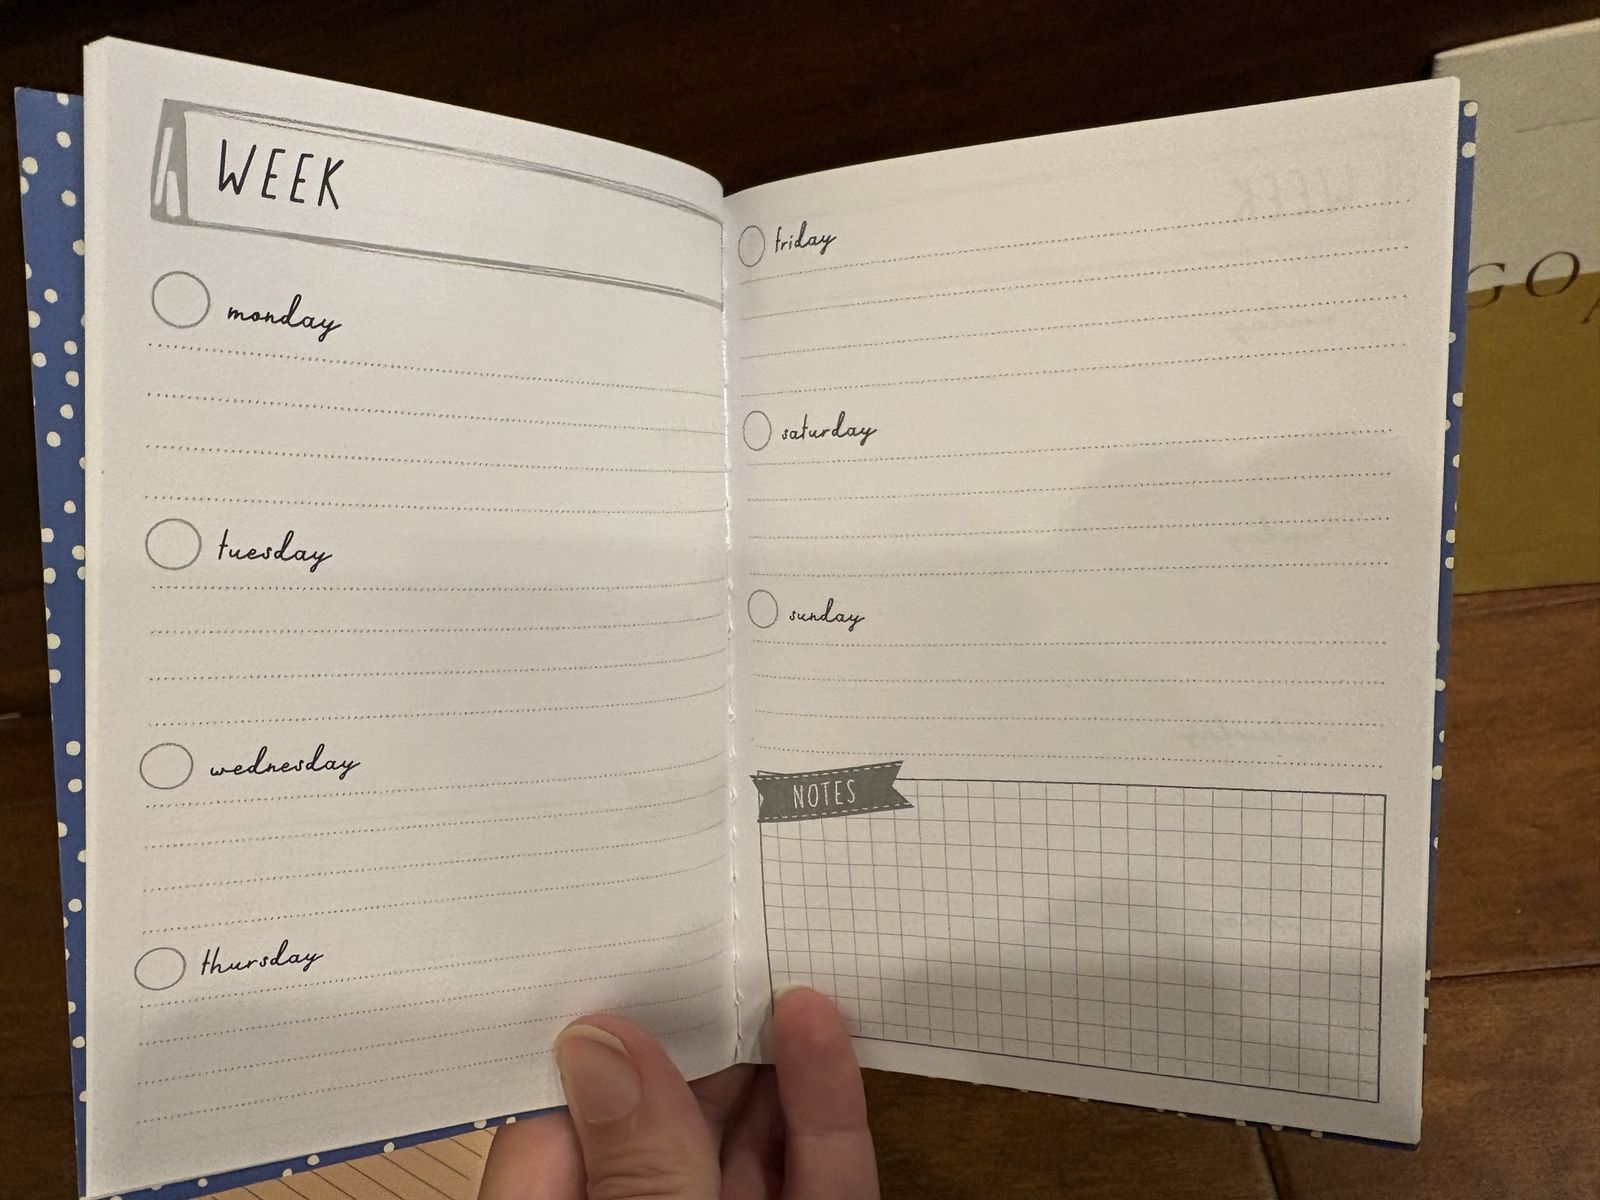 WEEK
monday
tuesday
wednesday
thursday
friday
saturday
sunday
NOTES
GO